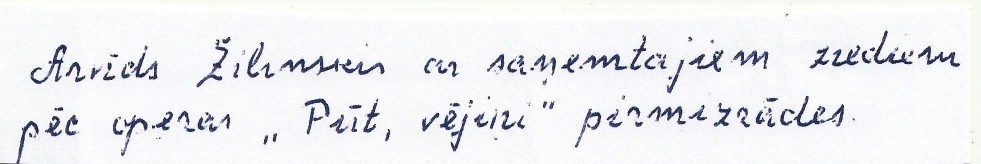 Arvīds Žilinskis ar saņemtajiem ziediem
pēc operas „Pūt, vējiņi" pirmizrādes.